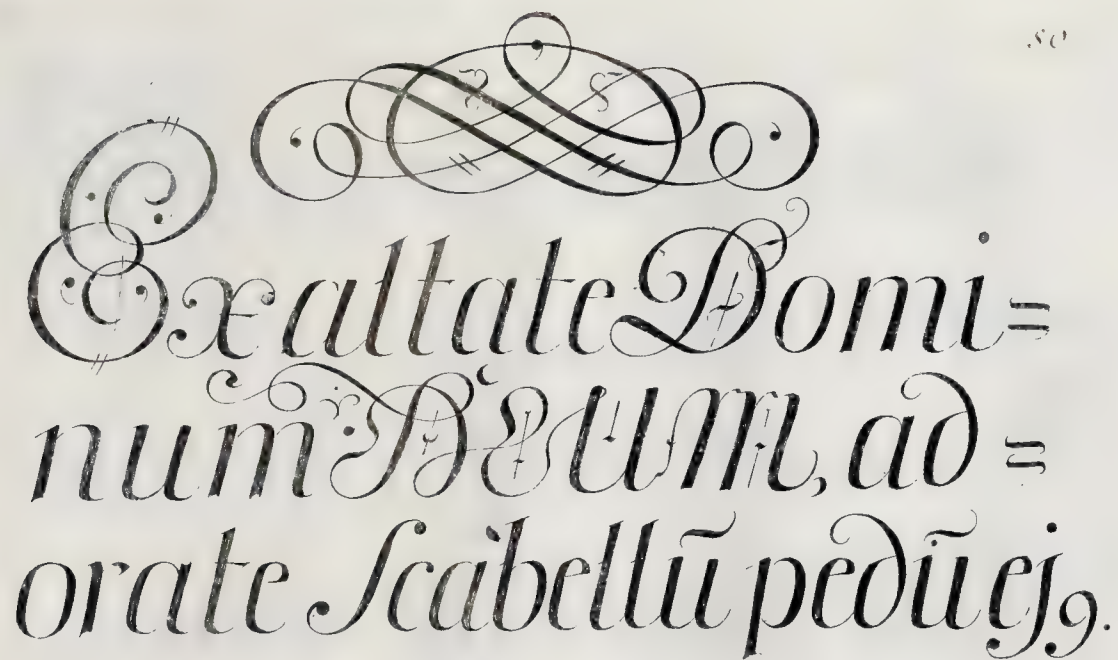 Exaltate Domi=
num DEUM, ad=
orate Scabellū pedū ejꝰ.